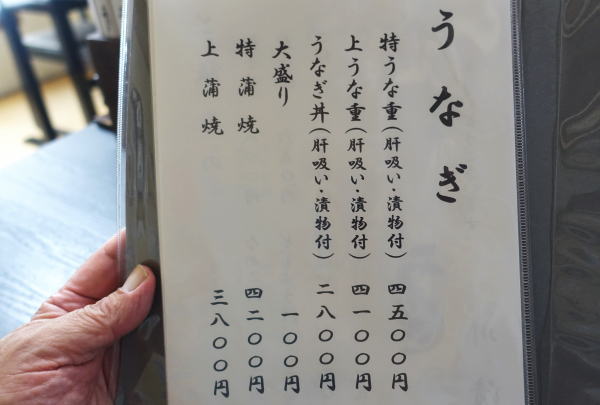 うなぎ
特うな重（肝吸い・漬物付） 四五〇〇円
上うな重（肝吸い・漬物付） 四一〇〇円
うなぎ丼（肝吸い・漬物付） 二八〇〇円
大盛り 一〇〇円
特蒲焼 四二〇〇円
上蒲焼 三八〇〇円